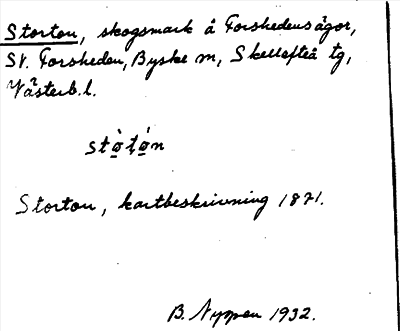 Storton, skogsmark å Forshedens ägor,
St. Forsheden, Byske sn, Skellefteå tg,
Västerb. l.
Storton, kartbeskrivning 1871.
B. Nyman 1932.